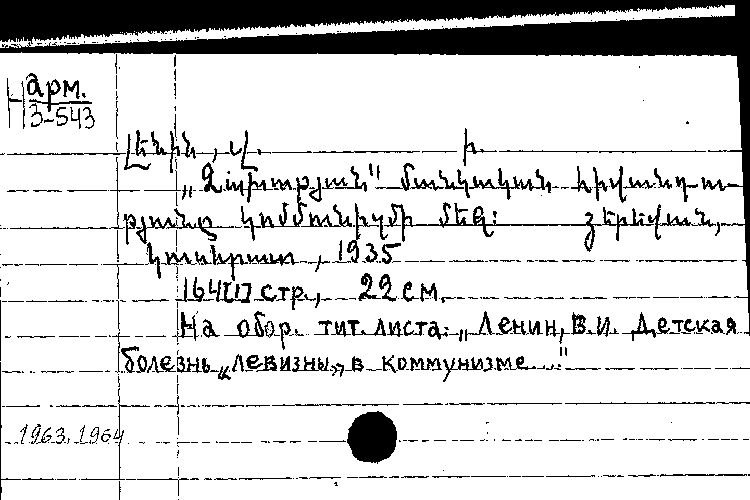 Н арм.
3-543
Լենին, վլ. ի.
„Ձախության" մանկական հիվանդու-
թյունը կոմմունիզմի մեջ: Յերեվան,
կուսհրատ, 1935
164[1] стр., 22 см.
На обор. тит. листа: „Ленин, В.И. Детская
болезнь „левизны„ в коммунизме..."
1963, 1964